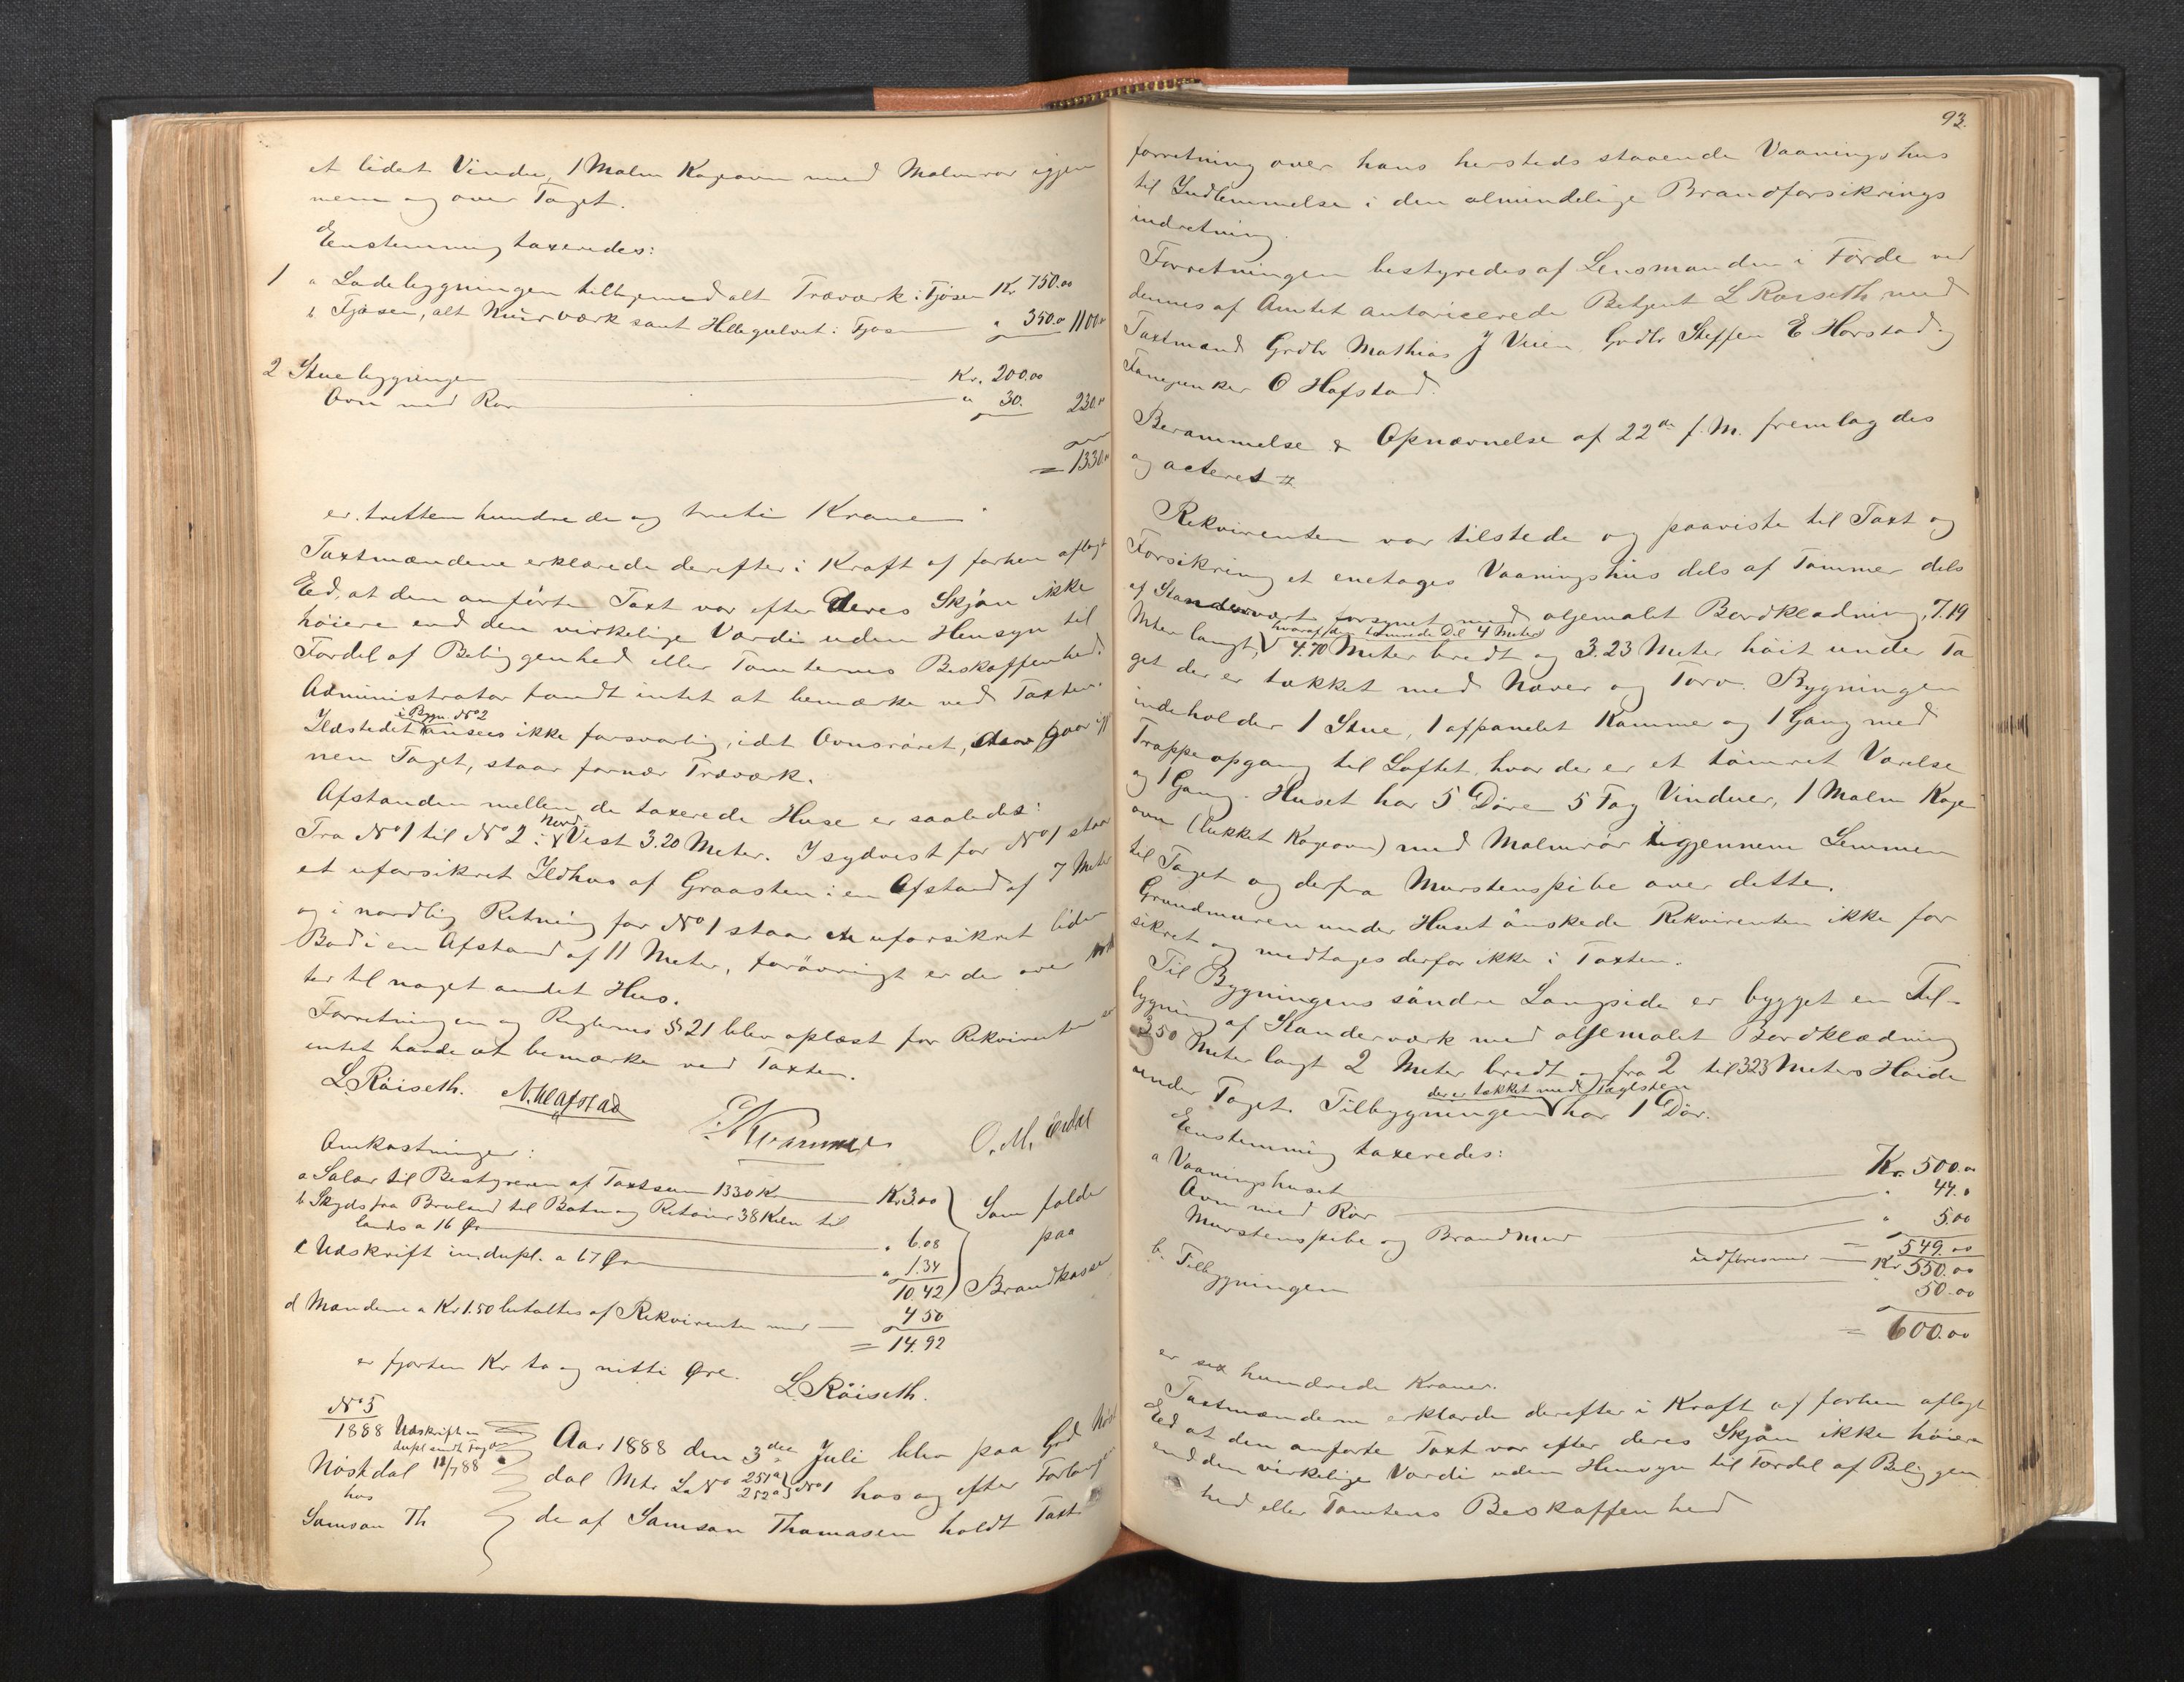 et lidet Vindu, 1 Malm Kogeovn med Malmrør igjen
nem og over Taget.
Eenstemmig taxeredes:
1 a Ladebygningen tilligemed alt Træværk i Fjøsen Kr 750.00
b Fjøsen, alt Muurværk samt Hellegulvet i Fjøsen " 350.00 1100.00
2 Stuebygningen Kr. 200.00
Ovn med Rør " 30. 230.00
= 1330.00
er tretten hundrede og treti Kroner
Taxtmændene erklærede derefter i Kraft af forhen aflagt
Eed, at den anførte Taxt var efter deres Skjøn ikke
høiere end den virkelige Værdi uden Hensyn til
Fordel af Beliggenhed eller Tomternes Beskaffenhed.
Administrator fandt intet at bemærke ved Taxten.
i Bygn. No 2
Ildstedet ansees ikke forsvarlig, idet Ovnsrøret, gaar igj
nem Taget, staar fornær Træværk.
Afstanden mellem de taxerede Huse er saaledes:
Fra No 1 til No 2 i Nord Vest 3.20 Meter. I sydvest for No 1 staar
et uforsikret Ildhus af Graasten i en Afstand af 7 Meter
og i nordlig Retning for No 1 staar en uforsikret liden
Bod i en Afstand af 11 Meter, forøvrigt er der over
ter til noget andet Hus.
Forretningen og Reglernes § 21 blev oplæst for Rekvirenten
intet havde at bemærke ved Taxten.
L. Røiseth. N. Hafstad
O. M. Erdal
Omkostninger:
a Salær til Bestyreren af Taxtsum 1330 Kr Kr 3.00
b Skyds fra Bruland til Botn og Retour 38 Kilm til
lands a 16 Øre " 6.08
c Udskrift in dupl. a 67 Øre " 1.34
10.42
Som falder
paa
Brandkassen
d Mændene a Kr 1.50 betaltes af Rekvirenten med 4.50
= 14.92
er fjorten Kr to og nitti Øre.
L. Røiseth.
No 5
1888 Udskrift in
dupl sendt Foged
Nøstdal 18/7 88
hos
Samson Th
Aar 1888 den 3die Juli blev paa Grd Nøst
dal Mtr L No 251a 252a No 1 hos og efter Forlangen
de af Samson Thomasen holdt Taxt
93.
forretning over hans hersteds staaende Vaaningshus
til Indlemmelse i den almindelige Brandforsikrings
indretning.
Forretningen bestyredes af Lensmanden i Førde ved
dennes af Amtet autoricerede Betjent L Røiseth med
Taxtmænd Grdbr Mathias J Veien Grdbr Steffen E Horstad og
O Hafstad.
Berammelse & Opnævnelse af 22de f. M. fremlagdes
og acteret
Rekvirenten var tilstede og paaviste til Taxt og
Forsikring et enetages Vaaningshus dels af Tømmer dels
af Standerværk forsynet med oljemalet Bordklædning, 7.19
hvoraf den tømrede Del 4 Meter
Meter langt, 4.70 Meter bredt og 3.23 Meter høit under Ta
get der er tækket med Næver og Torv. Bygningen
indeholder 1 Stue, 1 afpanelet Kammer og 1 Gang med
Trappeopgang til Loftet, hvor der er et tømret Værelse
og 1 Gang. Huset har 5 Døre 5 Fag Vinduer, 1 Malm Koge
ovn (lukket Kogeovn) med Malmrør igjennem Lemmen
til Taget og derfra Murstenspibe over dette.
Grundmuren under Huset ønskede Rekvirenten ikke for
sikret og medtages derfor ikke i Taxten.
Til Bygningens søndre Langside er bygget en Til-
bygning af Standerværk med oljemalet Bordklædning
3.50 Meter langt 2 Meter bredt og fra 2 til 3.23 Meters Høide
der er tækket med Taglsten
under Taget. Tilbygningen har 1 Dør.
Eenstemmig taxeredes:
a Vaaningshuset Kr. 500.00
Ovn med Rør " 44.0
Murstenspibe og Brandmur " 5.00
= 549.00
udføres med Kr 550.00
b. Tilbygningen 50.00
= 600.00
er sex hundrede Kroner.
Taxtmændene erklærede derefter i Kraft af forhen aflagt
Eed at den anførte Taxt var efter deres Skjøn ikke høiere
end den virkelige Værdi uden Hensyn til Fordel af Beliggen
hed eller Tomtens Beskaffenhed